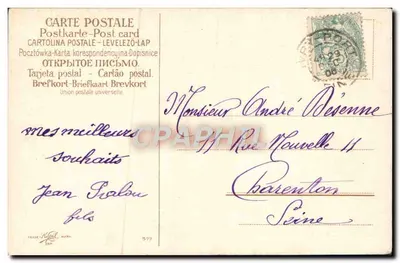 CARTE POSTALE
Postkarte-Post card
CARTOLINA POSTALE-LEVELEZŐ-LAP
Pocztówka-Karta korespondencyjna-Dopisnice
ОТКРЫТОЕ ПИСЬМО.
Tarjeta postal - Cartão postal.
Brefkort-Briefkaart Brevkort
Union postale universelle
Monsieur André Desenne
11 Rue Nouvelle 11
Charenton
Seine
mes meilleurs
souhaits
Jean
fils